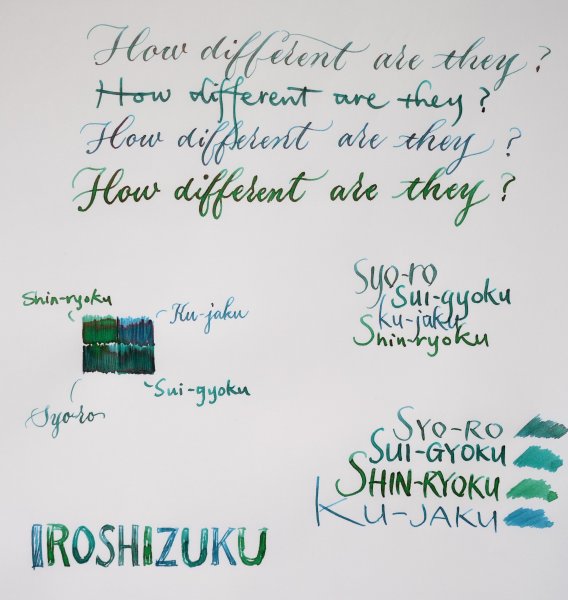 How different are they?
How different are they?
How different are they?
How different are they?
Shin-ryoku
Ku-jaku
Syo-ro
Sui-gyoku
Syo-ro
Sui-gyoku
Ku-jaku
Shin-ryoku
SYO-RO
SUI-GYOKU
SHIN-RYOKU
KU-JAKU
IROSHIZUKU